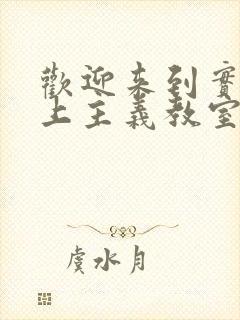 歡迎來到實
上主義教室
虞水月